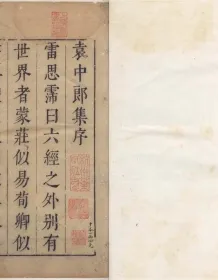 袁中郎集序
雷思霈曰六經之外別有
世界者蒙莊似易荀卿似